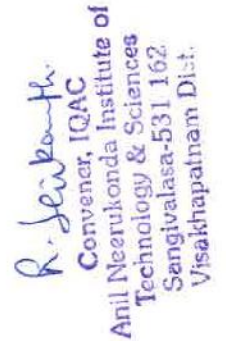 R. Srikanth.
Convener, IQAC
Anil Neerukonda Institute of
Technology & Sciences
Sangivalasa-531 162
Visakhapatnam Dist.